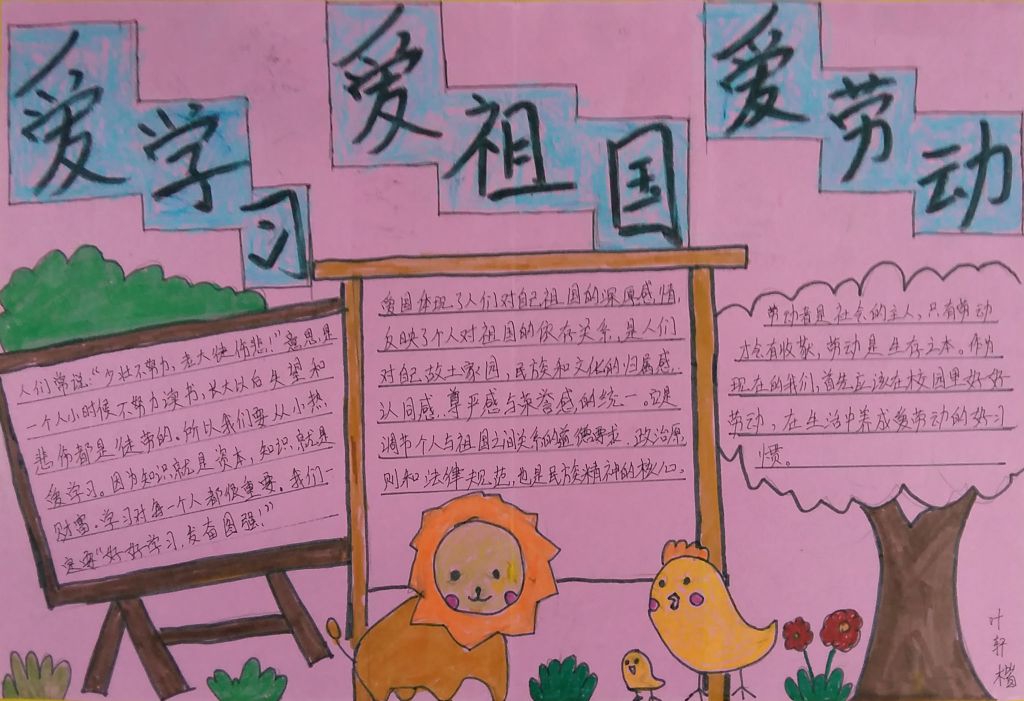 爱学习
爱祖国
爱劳动
人们常说:“少壮不努力,老大徒伤悲!”意思是
一个人小时候不努力读书,长大以后失望和
悲伤都是徒劳的。所以我们要从小热
爱学习。因为知识就是资本,知识就是
财富。学习对每一个人都很重要。我们一
定要“好好学习,发奋图强!”
爱国体现了人们对自己祖国的深厚感情,
反映了个人对祖国的依存关系,是人们
对自己故土家园,民族和文化的归属感.
认同感.尊严感与荣誉感的统一。它是
调节个人与祖国之间关系的道德要求.政治原
则和法律规范,也是民族精神的核心。
劳动者是社会的主人,只有劳动
才会有收获,劳动是生存之本。作为
现在的我们,首先应该在校园里好好
劳动,在生活中养成爱劳动的好习
惯。
叶轩楷